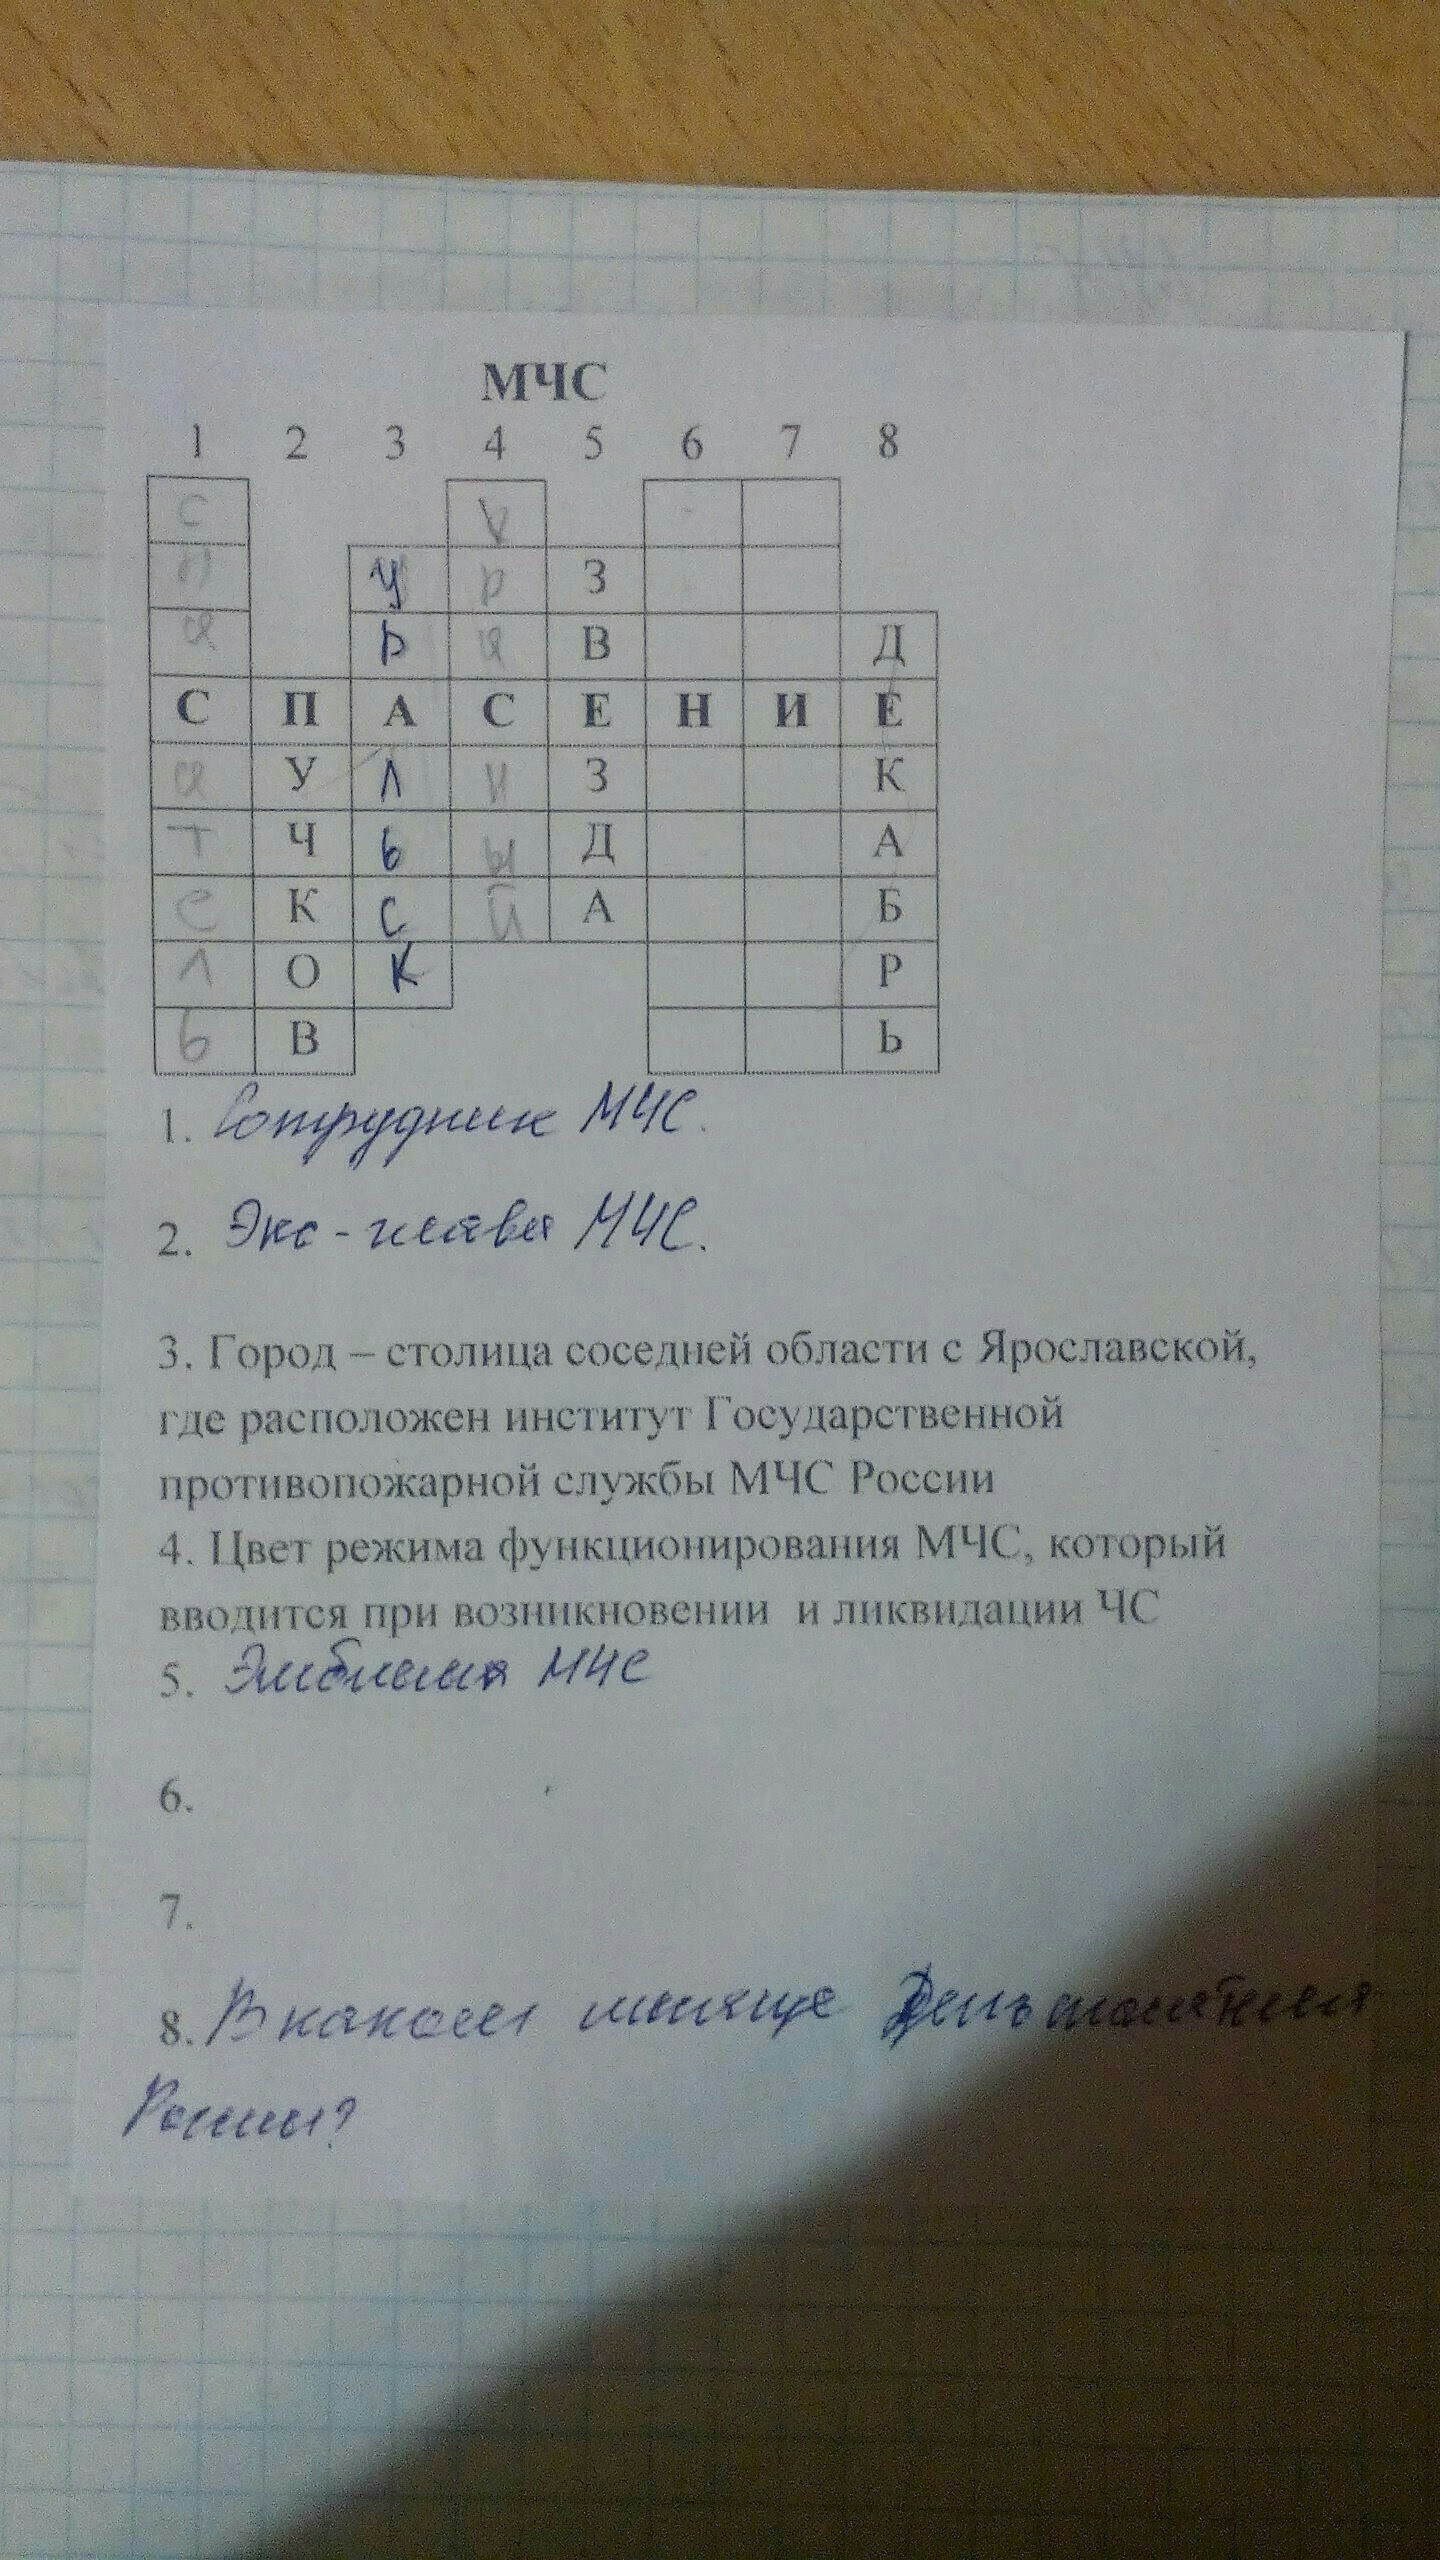 МЧС
1 2 3 4 5 6 7 8
С К
п У р З
а Р а В Д
С П А С Е Н И Е
а У Л н З К
т Ч Ь ы Д А
е К С й А Б
л О К Р
ь В Ь
1. Сотрудник МЧС.
2. Экс-глава МЧС.
3. Город – столица соседней области с Ярославской,
где расположен институт Государственной
противопожарной службы МЧС России
4. Цвет режима функционирования МЧС, который
вводится при возникновении и ликвидации ЧС
5. Эмблема МЧС
6.
7.
8. В каком месяце День спасателя
России?